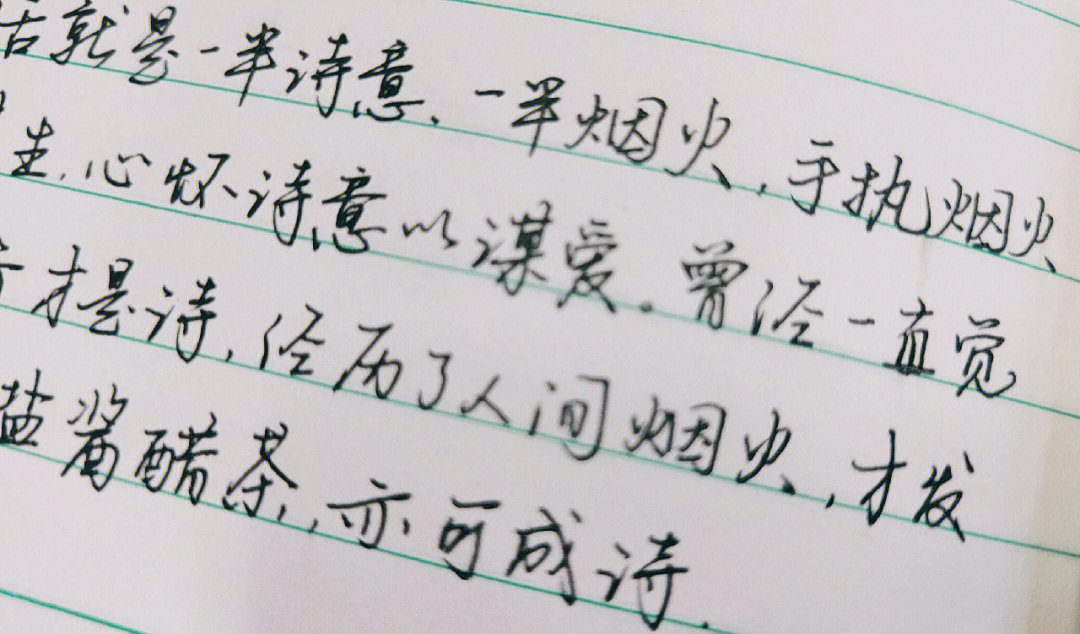 活就是一半诗意、一半烟火，手执烟火
生，心怀诗意以谋爱。曾经一直觉
才是诗，经历了人间烟火，才发
盐酱醋茶，亦可成诗.